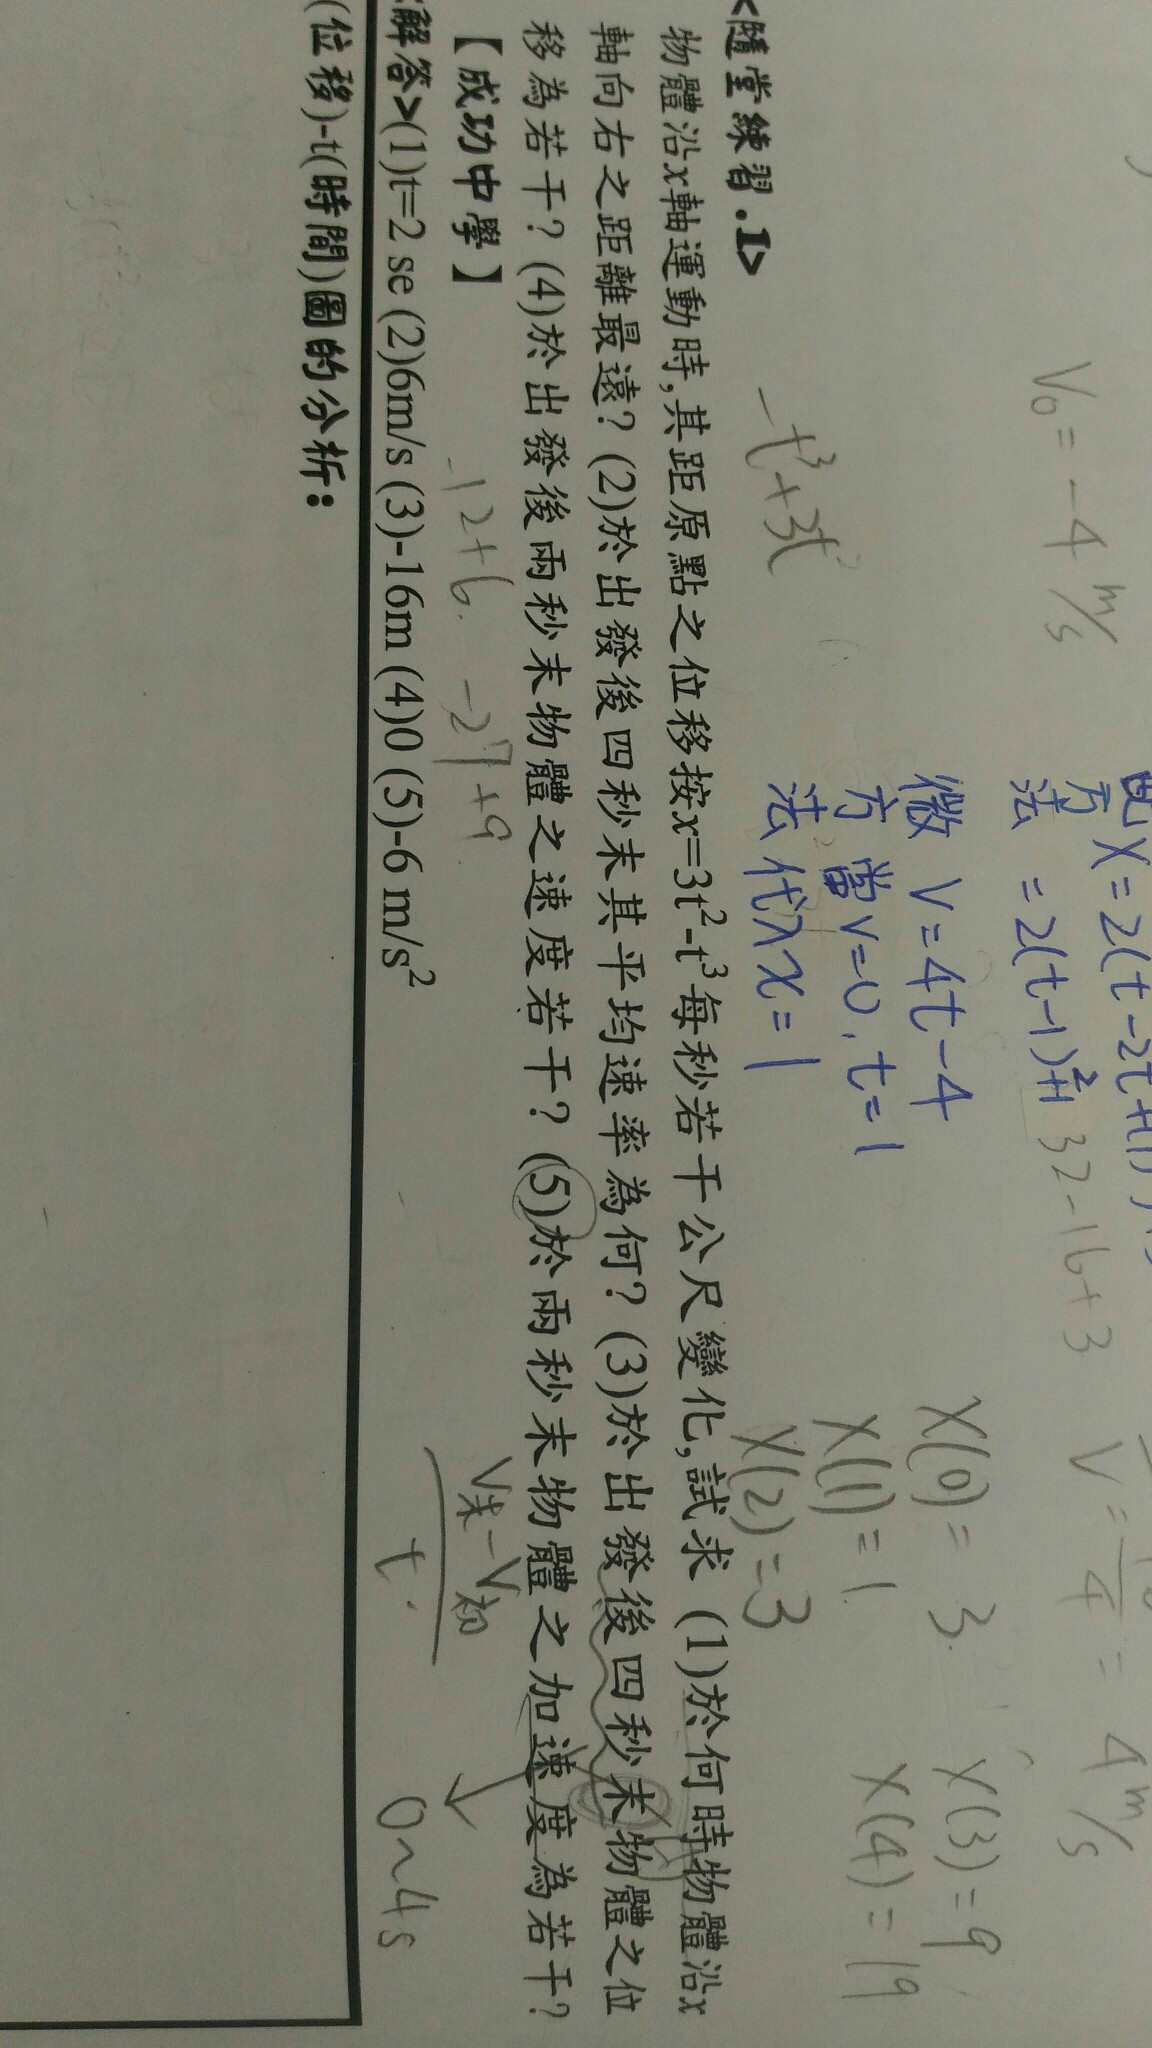 V₀ = -4 m/s
X = 2(t-2t+1)
方法 = 2(t-1)²+1
32-16+3
= 4 m/s
微方法
V = 4t-4
當V=0, t=1
代入x=1
X(0) = 3
X(1) = 1
X(2) = 3
X(3) = 9
X(4) = 19
-t³+3t²
<隨堂練習.1>
物體沿x軸運動時,其距原點之位移按x=3t²-t³每秒若干公尺變化,試求 (1)於何時物體沿x
軸向右之距離最遠? (2)於出發後四秒末其平均速率為何? (3)於出發後四秒末物體之位
移為若干? (4)於出發後兩秒末物體之速度若干? (5)於兩秒末物體之加速度為若干?
【成功中學】
-12+6.
-27+9.
V末-V初
t
0~4s
解答>(1)t=2 se (2)6m/s (3)-16m (4)0 (5)-6 m/s²
(位移)-t(時間)圖的分析: